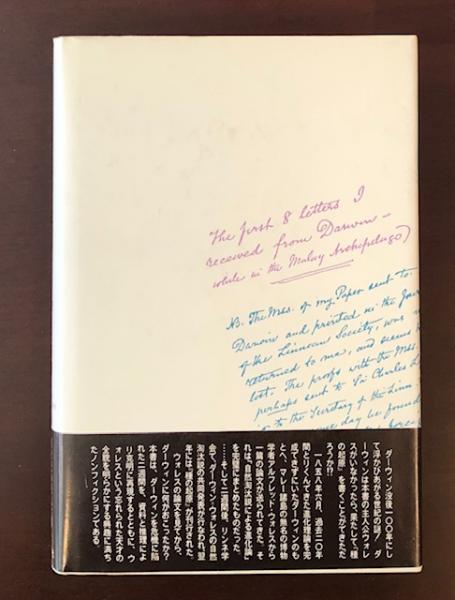 The first 8 letters I
received from Darwin –
while in the Malay Archipelago)
N.B. The Mss. of my Paper sent to
Darwin and printed in the Jour
of the Linnean Society, was
returned to me, and seems
lost. The proofs with the Mss.
perhaps sent to Sir Charles L
or to the Secretary of the Linn
some day be found
ダーウィン没後一〇〇年にし
て浮かびあがる世紀の謎! ダ
ーウィンは本書の主人公ウォレ
スがいなかったら、果たして『種
の起原』を書くことができただ
ろうか!?
一八五八年六月、過去二〇年
間とりくんできた進化理論を完
成できずにいたダーウィンのも
とへ、マレー諸島の無名の博物
学者アルフレッド・ウォレスから
一篇の論文が送られてきた。そ
れは、「自然淘汰説による進化論」
を完璧にまとめたものだった。
……そして二週間後、リンネ学
会でダーウィン・ウォレスの自然
淘汰説の共同発表が行なわれ、翌
年には『種の起原』が刊行された。
ウォレスの論文を見てから、
ダーウィンに何がおこったか?
本書は、ダーウィンが危機に陥
れた二週間を、資料と推理によ
り克明に再現するとともに、ウ
ォレスという忘れられた天才の
全貌を明らかにする興趣に満ち
たノンフィクションである。